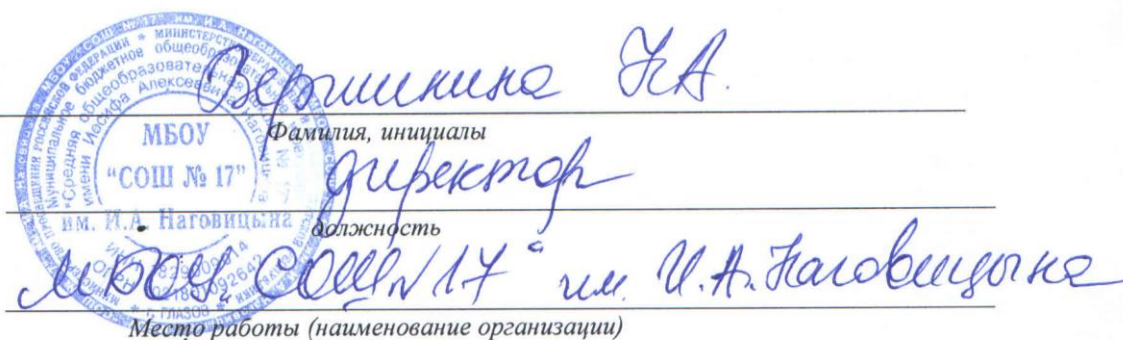 Вершинина Н.А.
Фамилия, инициалы
директор
должность
МБОУ "СОШ N 17" им. И.А. Наговицына
Место работы (наименование организации)
МБОУ
"СОШ № 17"
им. И.А. Наговицына
Муниципальное бюджетное общеобразовательное
"Средняя общеобразовательная
имени Иосифа Алексеевича Наговицына
г. ГЛАЗОВ